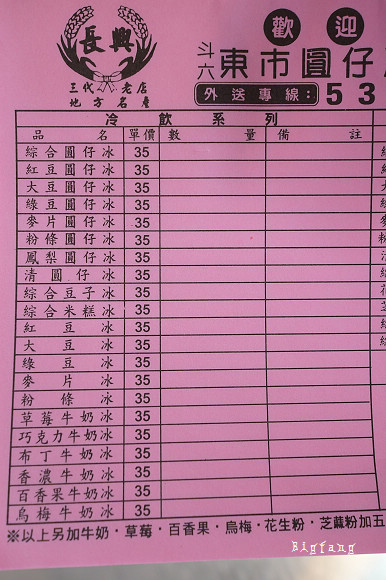 歡迎
長興
三代老店
地方名產
斗六東市圓仔
外送專線：53
冷飲系列
品名 單價 數量 備註
綜合圓仔冰 35
紅豆圓仔冰 35
大豆圓仔冰 35
綠豆圓仔冰 35
麥片圓仔冰 35
粉條圓仔冰 35
鳳梨圓仔冰 35
清圓仔冰 35
綜合豆子冰 35
綜合米糕冰 35
紅豆冰 35
大豆冰 35
綠豆冰 35
麥片冰 35
粉條冰 35
草莓牛奶冰 35
巧克力牛奶冰 35
布丁牛奶冰 35
香濃牛奶冰 35
百香果牛奶冰 35
烏梅牛奶冰 35
※以上另加牛奶·草莓·百香果·烏梅·花生粉·芝麻粉加五
Bigfang